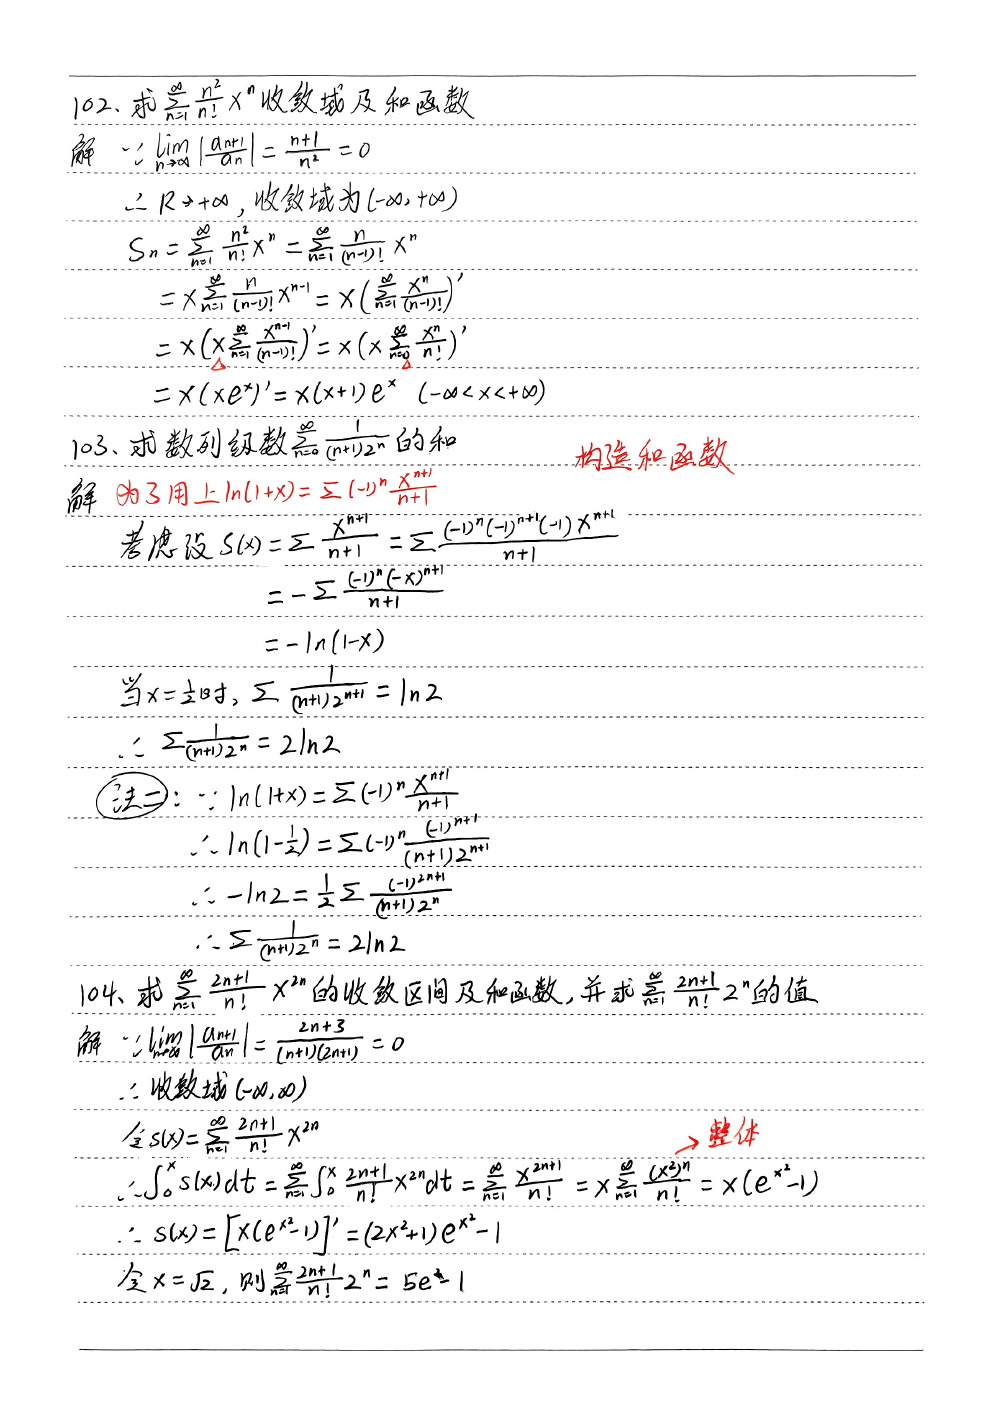 102、求∑_{n=1}^{∞} n²/n! xⁿ 收敛域及和函数
解 ∵ lim_{n→∞} |a_{n+1}/a_n| = (n+1)/n² = 0
∴ R→+∞, 收敛域为(-∞, +∞)
Sn = ∑_{n=1}^{∞} n²/n! xⁿ = ∑_{n=1}^{∞} n/(n-1)! xⁿ
= x∑_{n=1}^{∞} n/(n-1)! x^{n-1} = x(∑_{n=1}^{∞} xⁿ/(n-1)!)′
= x(x∑_{n=1}^{∞} x^{n-1}/(n-1)!)′ = x(x∑_{n=0}^{∞} xⁿ/n!)′
= x(xeˣ)′ = x(x+1)eˣ (-∞<x<+∞)
103、求数列级数∑_{n=0}^{∞} 1/((n+1)2ⁿ) 的和
构造和函数
解 为了用上 ln(1+x) = ∑(-1)ⁿ x^{n+1}/(n+1)
考虑设 S(x) = ∑ x^{n+1}/(n+1) = ∑ (-1)ⁿ(-1)^{n+1}(-1)x^{n+1}/(n+1)
= -∑ (-1)ⁿ(-x)^{n+1}/(n+1)
= -ln(1-x)
当x=½时, ∑ 1/((n+1)2^{n+1}) = ln2
∴ ∑ 1/((n+1)2ⁿ) = 2ln2
法二: ∵ ln(1+x) = ∑(-1)ⁿ x^{n+1}/(n+1)
∴ ln(1-½) = ∑(-1)ⁿ (-1)^{n+1}/((n+1)2^{n+1})
∴ -ln2 = ½∑ (-1)^{2n+1}/((n+1)2ⁿ)
∴ ∑ 1/((n+1)2ⁿ) = 2ln2
104、求∑_{n=1}^{∞} (2n+1)/n! x^{2n} 的收敛区间及和函数, 并求∑_{n=1}^{∞} (2n+1)/n! 2ⁿ的值
解 ∵ lim_{n→∞} |a_{n+1}/a_n| = (2n+3)/((n+1)(2n+1)) = 0
∴ 收敛域(-∞,∞)
令s(x) = ∑_{n=1}^{∞} (2n+1)/n! x^{2n}
→整体
∴ ∫₀ˣ s(x)dt = ∑_{n=1}^{∞} ∫₀ˣ (2n+1)/n! x^{2n}dt = ∑_{n=1}^{∞} x^{2n+1}/n! = x∑_{n=1}^{∞} (x²)ⁿ/n! = x(e^{x²}-1)
∴ s(x) = [x(e^{x²}-1)]′ = (2x²+1)e^{x²}-1
令x=√2, 则∑_{n=1}^{∞} (2n+1)/n! 2ⁿ = 5e²-1